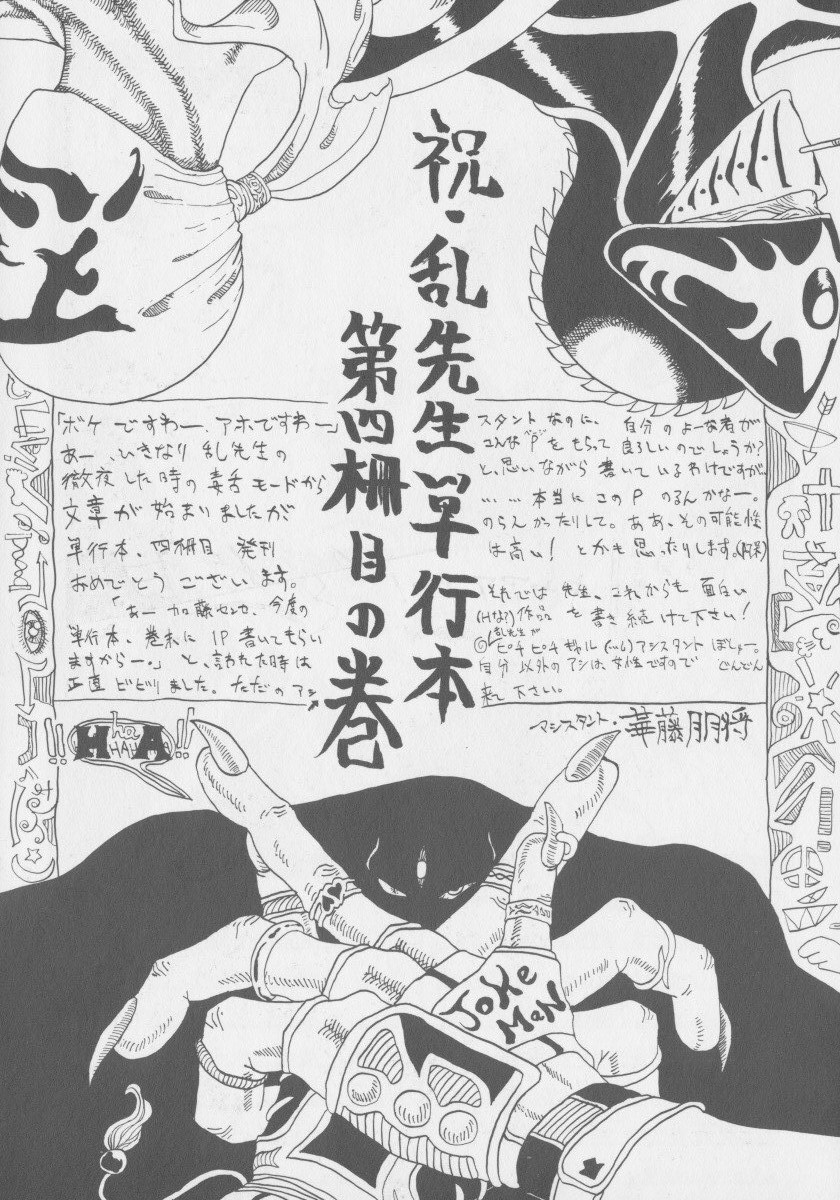 祝・乱先生単行本
第四柵目の巻
「ボケですわー、アホですわー」
あー、いきなり乱先生の
徹夜した時の毒舌モードから
文章が始まりましたが
単行本、四冊目 発刊
おめでとうございます。
「あー加藤センセ、今度の
単行本、巻末に1P書いてもらい
ますからー。」と、言われた時は
正直ビビりました。ただのアシ
スタントなのに、自分のよーな者が
こんな"P"をもらって良ろしいのでしょうか?
と、思いながら書いているわけですが、
……本当にこのPのるんかなー。
のらんかったりして。ああ、その可能性
は高い!とかも思ったりします。
それでは先生、これからも面白い
(Hな?)作品を書き続けて下さい!
乱先生が
◎ピチピチギャル アシスタントぼしょー。
自分以外のアシは、女性ですので じゃんじゃん
来て下さい。
マシスタント・華藤朋将
!!
ha
HA
HAHA
!!
JoKe
MaN